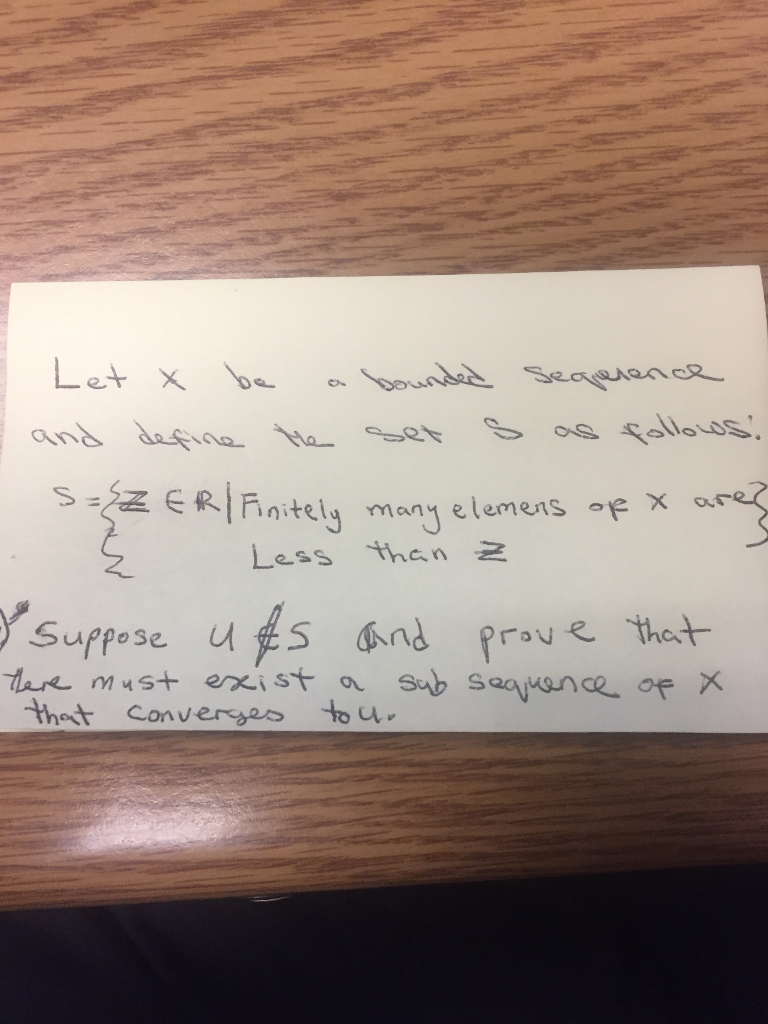 Let x be a bounded sequence
and define the set S as follows:
S = {Z ∈ R | Finitely many elemens of x are}
Less than Z
Suppose u ∉ S and prove that
there must exist a sub sequence of X
that converges to u.